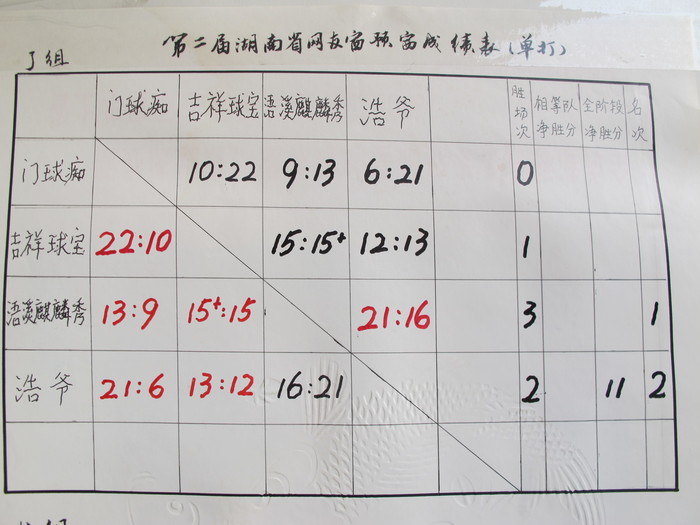 第二届湖南省网友赛预赛成绩表(单打)
J组
门球痴 吉祥球宝 浯溪麒麟秀 浩爷 胜场次 相等队净胜分 全阶段净胜分 名次
门球痴 10:22 9:13 6:21 0
吉祥球宝 22:10 15:15+ 12:13 1
浯溪麒麟秀 13:9 15+:15 21:16 3 1
浩爷 21:6 13:12 16:21 2 11 2